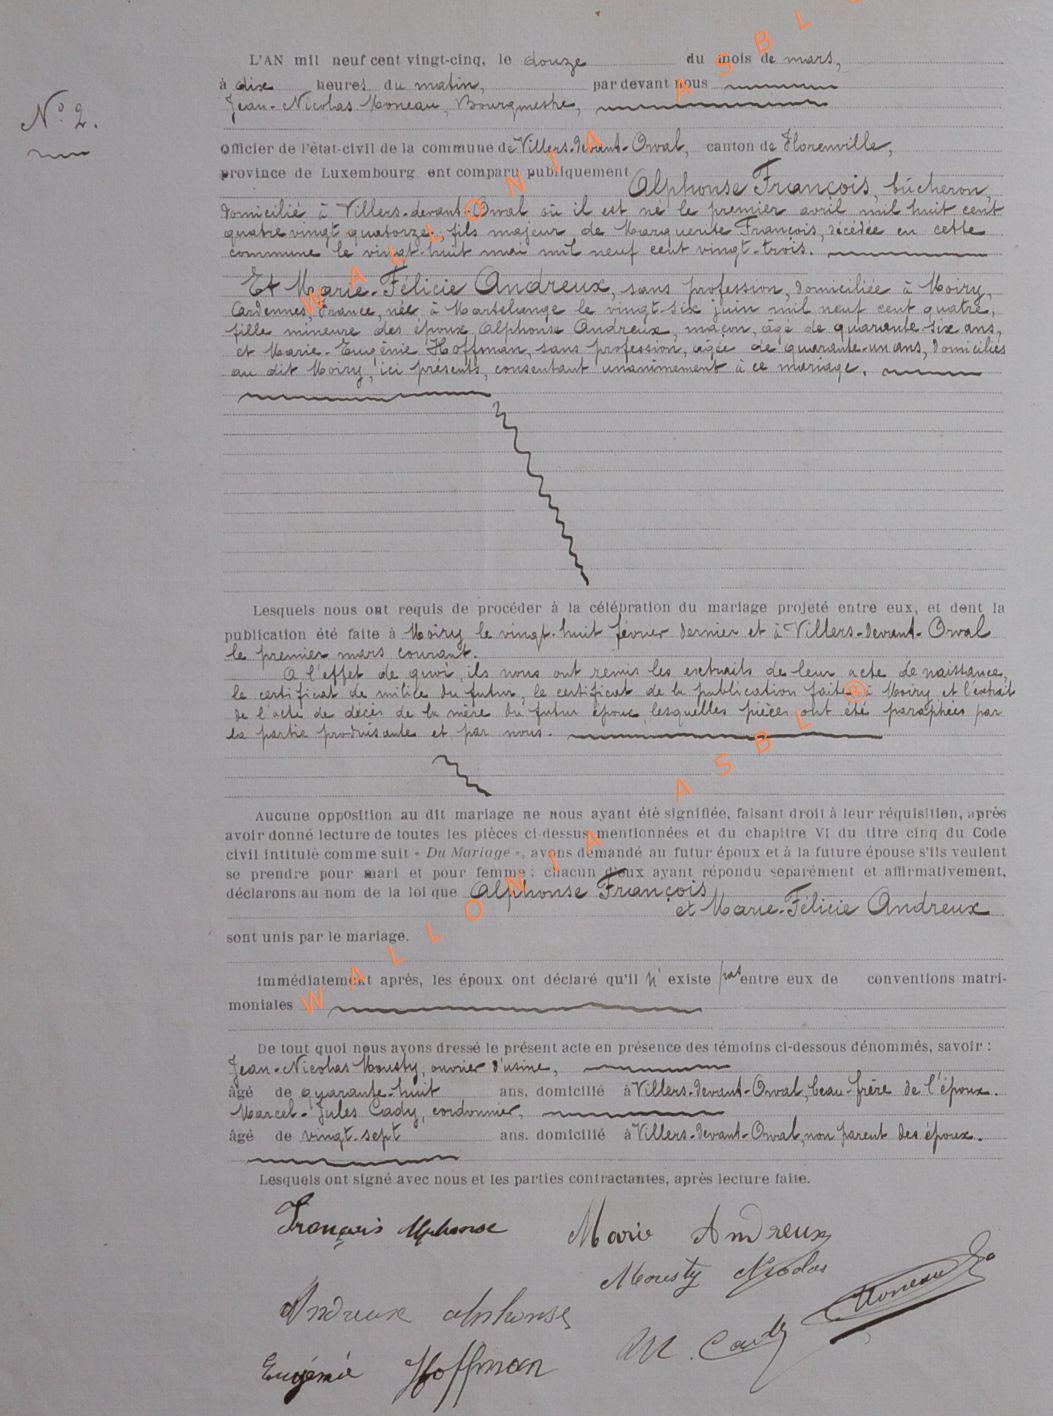 L'AN mil neuf cent vingt-cinq, le douze du mois de mars,
à dix heures du matin, par devant nous
N° 2.
Jean-Nicolas Moneau, Bourgmestre,
Officier de l'état-civil de la commune de Villers-devant-Orval, canton de Florenville,
province de Luxembourg ont comparu publiquement Alphonse François, bûcheron,
domicilié à Villers-devant-Orval où il est né le premier avril mil huit cent
quatre vingt quatorze, fils majeur de Marguerite François, décédée en cette
commune le vingt-huit mai mil neuf cent vingt-trois.
Et Marie-Félicie Andreux, sans profession, domiciliée à Moiry,
Ardennes, France, née à Martelange le vingt-six juin mil neuf cent quatre,
fille mineure des époux Alphonse Andreux, maçon, âgé de quarante-six ans,
et Marie-Eugènie Hoffman, sans profession, âgée de quarante-un ans, domiciliés
au dit Moiry, ici présents, consentant unanimement à ce mariage.
Lesquels nous ont requis de procéder à la célébration du mariage projeté entre eux, et dont la
publication été faite à Moiry le vingt-huit février dernier et à Villers-devant-Orval
le premier mars courant.
A l'effet de quoi ils nous ont remis les extraits de leur acte de naissance,
le certificat de milice du futur, le certificat de la publication faite à Moiry et l'extrait
de l'acte de décès de la mère du futur époux, lesquelles pièces ont été paraphées par
la partie produisante et par nous.
Aucune opposition au dit mariage ne nous ayant été signifiée, faisant droit à leur réquisition, après
avoir donné lecture de toutes les pièces ci-dessus mentionnées et du chapitre VI du titre cinq du Code
civil intitulé comme suit « Du Mariage », avons demandé au futur époux et à la future épouse s'ils veulent
se prendre pour mari et pour femme ; chacun d'eux ayant répondu séparément et affirmativement,
déclarons au nom de la loi que Alphonse François
et Marie-Félicie Andreux
sont unis par le mariage.
Immédiatement après, les époux ont déclaré qu'il n'existe pas entre eux de conventions matri-
moniales
De tout quoi nous avons dressé le présent acte en présence des témoins ci-dessous dénommés, savoir :
Jean-Nicolas Mousty, ouvrier d'usine,
âgé de quarante-huit ans, domicilié à Villers-devant-Orval, beau-frère de l'époux.
Marcel-Jules Cady, cordonnier,
âgé de vingt-sept ans, domicilié à Villers-devant-Orval, non parent des époux.
Lesquels ont signé avec nous et les parties contractantes, après lecture faite.
François Alphonse Marie Andreux
Mousty Nicolas
Moneau
Andreux alphonse
M. Cady
Eugénie Hoffman
WALLONIA ASBL
WALLONIA ASBL ®